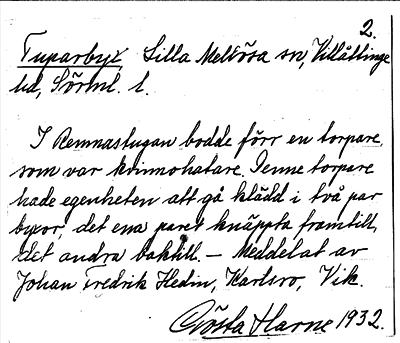 2.
Tuparbyx Lilla Mellösa sn, Villåttinge
hd, Sörml. l.
I Remnastugan bodde förr en torpare,
som var kvinnohatare. Denne torpare
hade egenheten att gå klädd i två par
byxor, det ena paret knäppta framtill,
det andra baktill. — Meddelat av
Johan Fredrik Hedin, Karlsro, Vik.
Gösta Harne 1932.